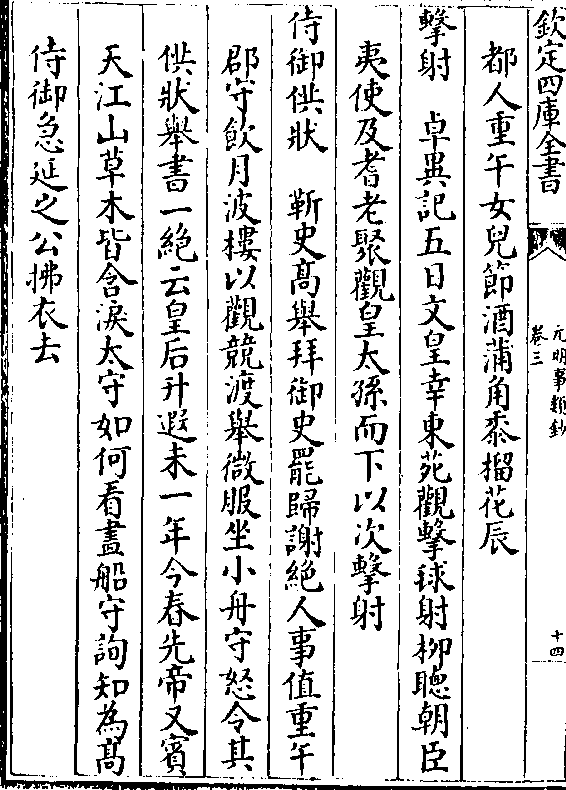 欽定四庫全書
元明事類鈔
卷三
十四
都人重午女兒節酒蒲角黍榴花辰
擊射　卓異記五日文皇幸東苑觀擊球射柳聽朝臣
夷使及耆老聚觀皇太孫而下以次擊射
侍御供狀　靳史高舉拜御史罷歸謝絕人事值重午
郡守飲月波樓以觀競渡舉微服坐小舟守怒令其
供狀舉書一絕云皇后升遐未一年今春先帝又賓
天江山草木皆含淚太守如何看畫船守詢知為高
侍御急延之公拂衣去